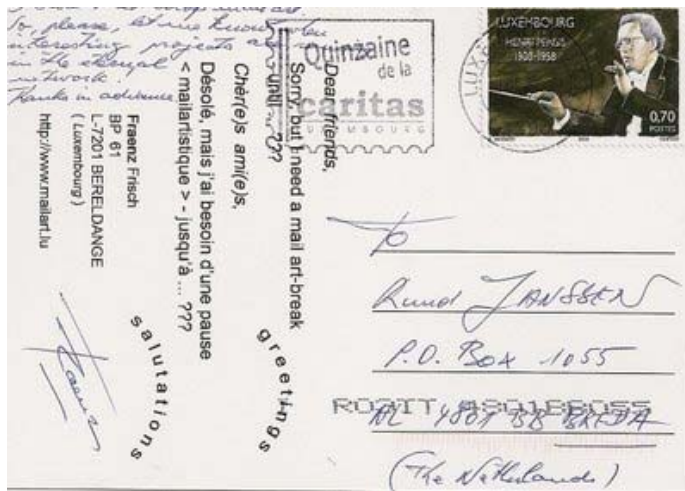 So, please, let me know when
interesting projects are
in the eternal
network.
Thanks in advance
Quinzaine
de la
caritas
LUXEMBOURG
LUXEMBOURG
HENRI PENSIS
1900-1958
0,70
POSTES
Dear friends,
Sorry, but I need a mail art-break
until ... ???
Chèr(e)s ami(e)s,
Désolé, mais j'ai besoin d'une pause
< mailartistique > - jusqu'à ... ???
Fraenz Frisch
BP 61
L-7201 BERELDANGE
( Luxembourg )
http://www.mailart.lu
greetings
salutations
To
Ruud JANSSEN
P.O. Box 1055
NL 4801 BB BREDA
(The Netherlands)